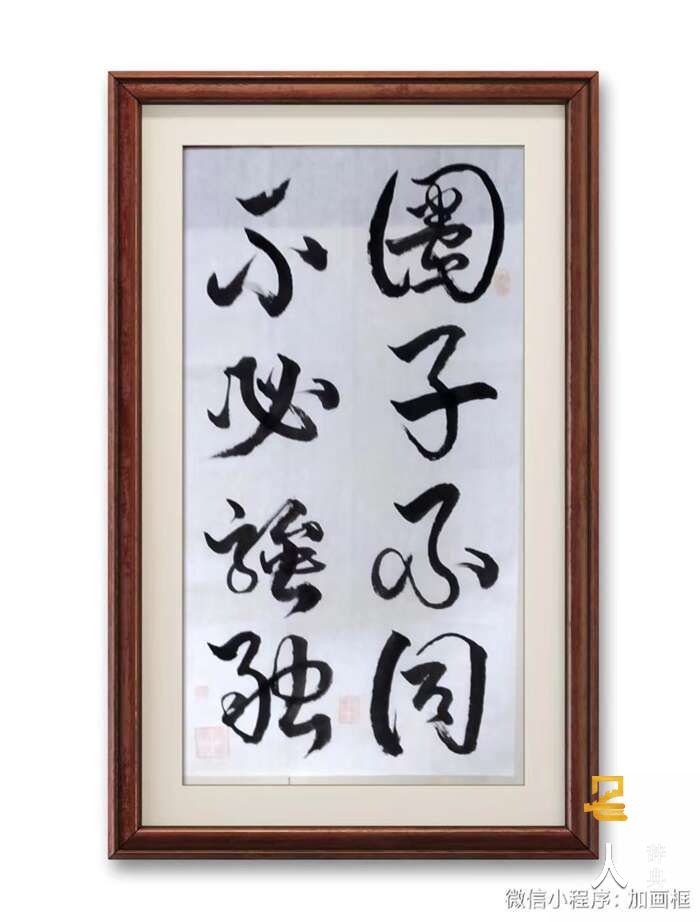 圈子不同
不必強融
人
辞典
微信小程序：加画框